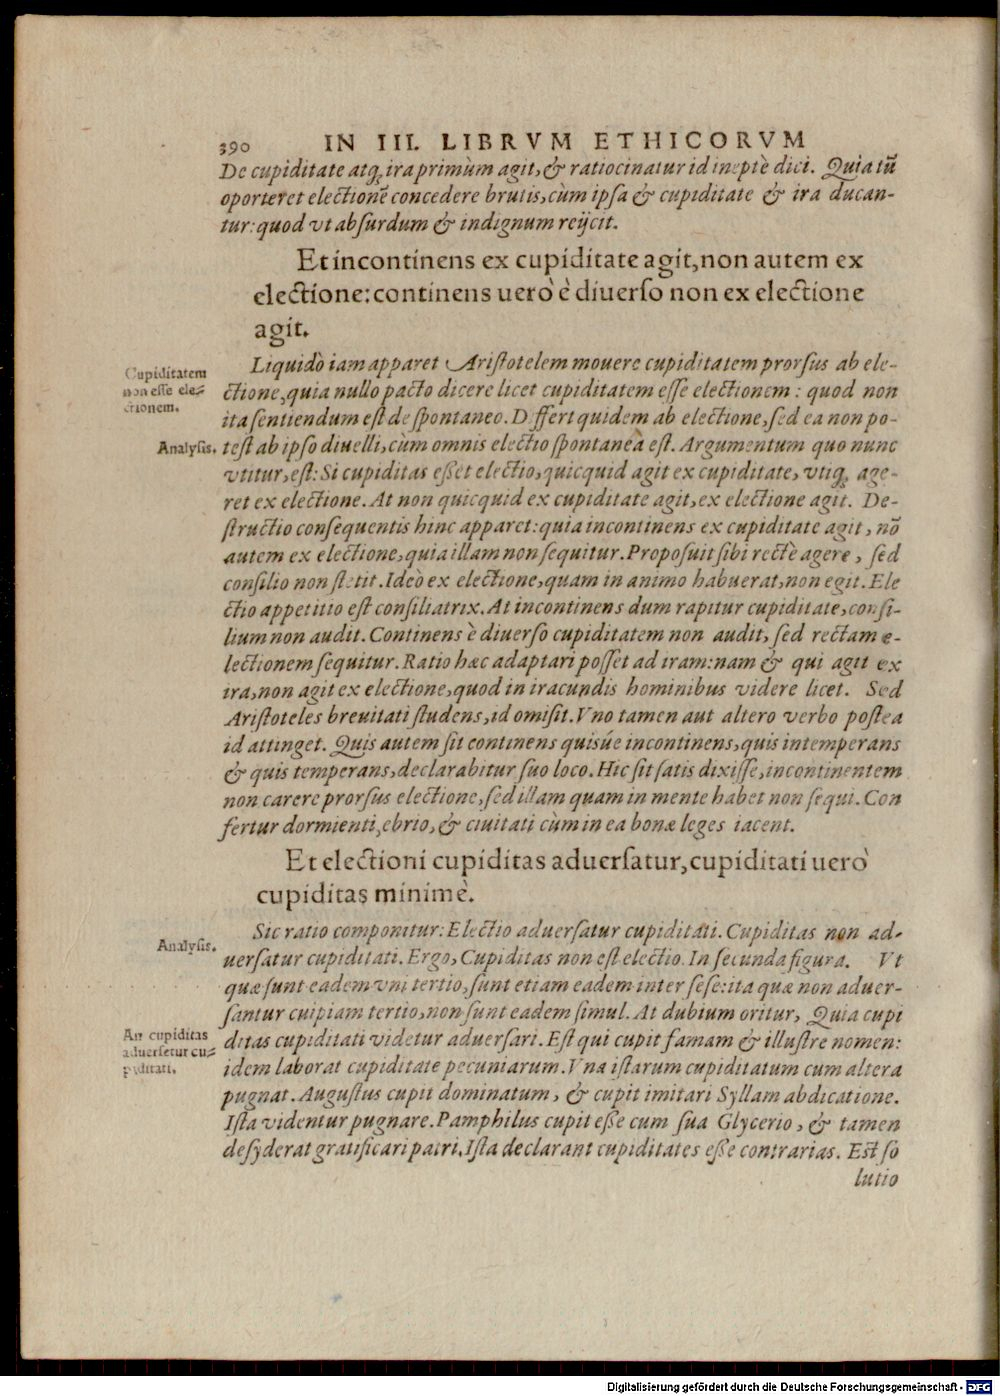 390 IN III. LIBRVM ETHICORVM
De cupiditate atq; ira primùm agit, & ratiocinatur id ineptè dici. Quia tũ
oporteret electionẽ concedere brutis, cùm ipsa & cupiditate & ira ducan-
tur: quod vt absurdum & indignum reijcit.
Et incontinens ex cupiditate agit, non autem ex
electione: continens uerò è diuerso non ex electione
agit.
Cupiditatem
non esse ele-
ctionem.
Liquidò iam apparet Aristotelem mouere cupiditatem prorsus ab ele-
ctione, quia nullo pacto dicere licet cupiditatem esse electionem: quod non
ita sentiendum est de spontaneo. Differt quidem ab electione, sed ea non po-
Analysis.
test ab ipso diuelli, cùm omnis electio spontanea est. Argumentum quo nunc
vtitur, est: Si cupiditas esset electio, quicquid agit ex cupiditate, vtiq; age-
ret ex electione. At non quicquid ex cupiditate agit, ex electione agit. De-
structio consequentis hinc apparet: quia incontinens ex cupiditate agit, nõ
autem ex electione, quia illam non sequitur. Proposuit sibi rectè agere, sed
consilio non stetit. Ideò ex electione, quam in animo habuerat, non egit. Ele
ctio appetitio est consiliatrix. At incontinens dum rapitur cupiditate, consi-
lium non audit. Continens è diuerso cupiditatem non audit, sed rectam e-
lectionem sequitur. Ratio hæc adaptari posset ad iram: nam & qui agit ex
ira, non agit ex electione, quod in iracundis hominibus videre licet. Sed
Aristoteles breuitati studens, id omisit. Vno tamen aut altero verbo postea
id attinget. Quis autem sit continens quisúe incontinens, quis intemperans
& quis temperans, declarabitur suo loco. Hic sit satis dixisse, incontinentem
non carere prorsus electione, sed illam quam in mente habet non sequi. Con
fertur dormienti, ebrio, & ciuitati cùm in ea bonæ leges iacent.
Et electioni cupiditas aduersatur, cupiditati uerò
cupiditas minimè.
Analysis.
Sic ratio componitur: Electio aduersatur cupiditati. Cupiditas non ad-
uersatur cupiditati. Ergo, Cupiditas non est electio. In secunda figura. Vt
quæ sunt eadem vni tertio, sunt etiam eadem inter sese: ita quæ non aduer-
santur cuipiam tertio, non sunt eadem simul. At dubium oritur, Quia cupi
An cupiditas
aduersetur cu-
piditati.
ditas cupiditati videtur aduersari. Est qui cupit famam & illustre nomen:
idem laborat cupiditate pecuniarum. Vna istarum cupiditatum cum altera
pugnat. Augustus cupit dominatum, & cupit imitari Syllam abdicatione.
Ista videntur pugnare. Pamphilus cupit esse cum sua Glycerio, & tamen
desyderat gratificari patri. Ista declarant cupiditates esse contrarias. Est so
lutio
Digitalisierung gefördert durch die Deutsche Forschungsgemeinschaft - DFG